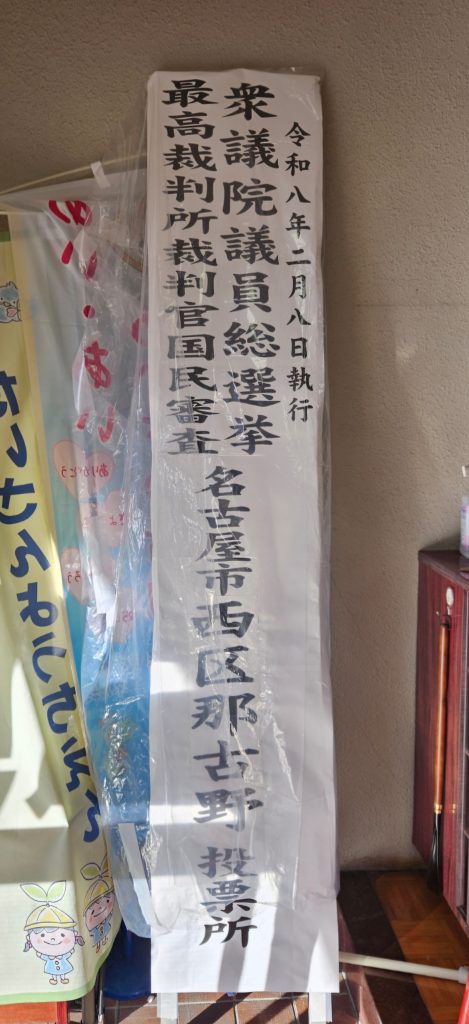 令和八年二月八日執行
衆議院議員総選挙
最高裁判所裁判官国民審査
名古屋市西区那古野投票所
ありがとう